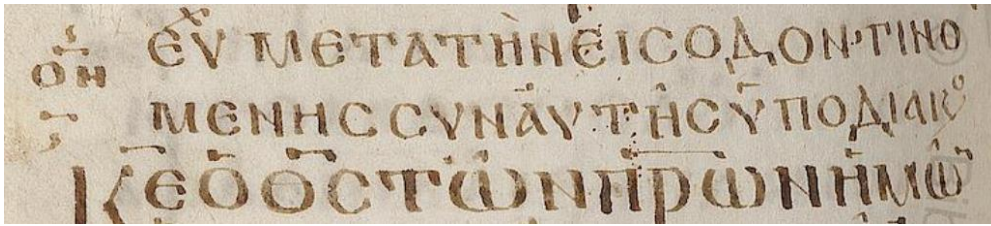 ΕΥΧ ΜΕΤΑ ΤΗΝ ΕΙϹΟΔΟΝ· ΓΙΝΟ
ΜΕΝΗϹ ϹΥΝΑΥΤΗϹ ΥΠΟΔΙΑΚΟ
ΚΕ Ο ΘϹ ΤΩΝ ΠΡΩΝ ΗΜΩ